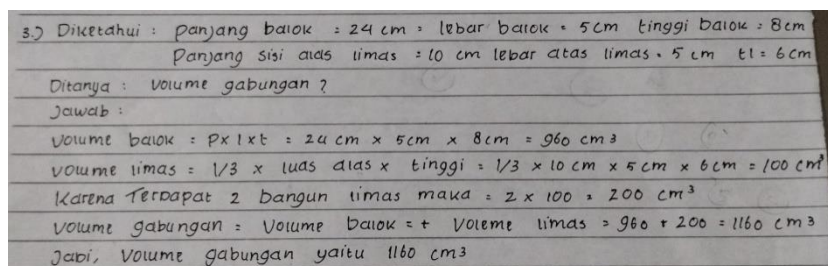 3.) Diketahui : panjang balok = 24 cm = lebar balok = 5cm tinggi balok = 8cm
Panjang sisi alas limas = 10 cm lebar atas limas = 5 cm tl = 6cm
Ditanya : volume gabungan ?
Jawab :
Volume balok = P x l x t = 24 cm x 5cm x 8cm = 960 cm3
Volume limas = 1/3 x luas alas x tinggi = 1/3 x 10 cm x 5 cm x 6cm = 100 cm3
Karena Terdapat 2 bangun limas maka = 2 x 100 = 200 cm3
Volume gabungan = Volume balok = + Voleme limas = 960 + 200 = 1160 cm3
Jadi, Volume gabungan yaitu 1160 cm3